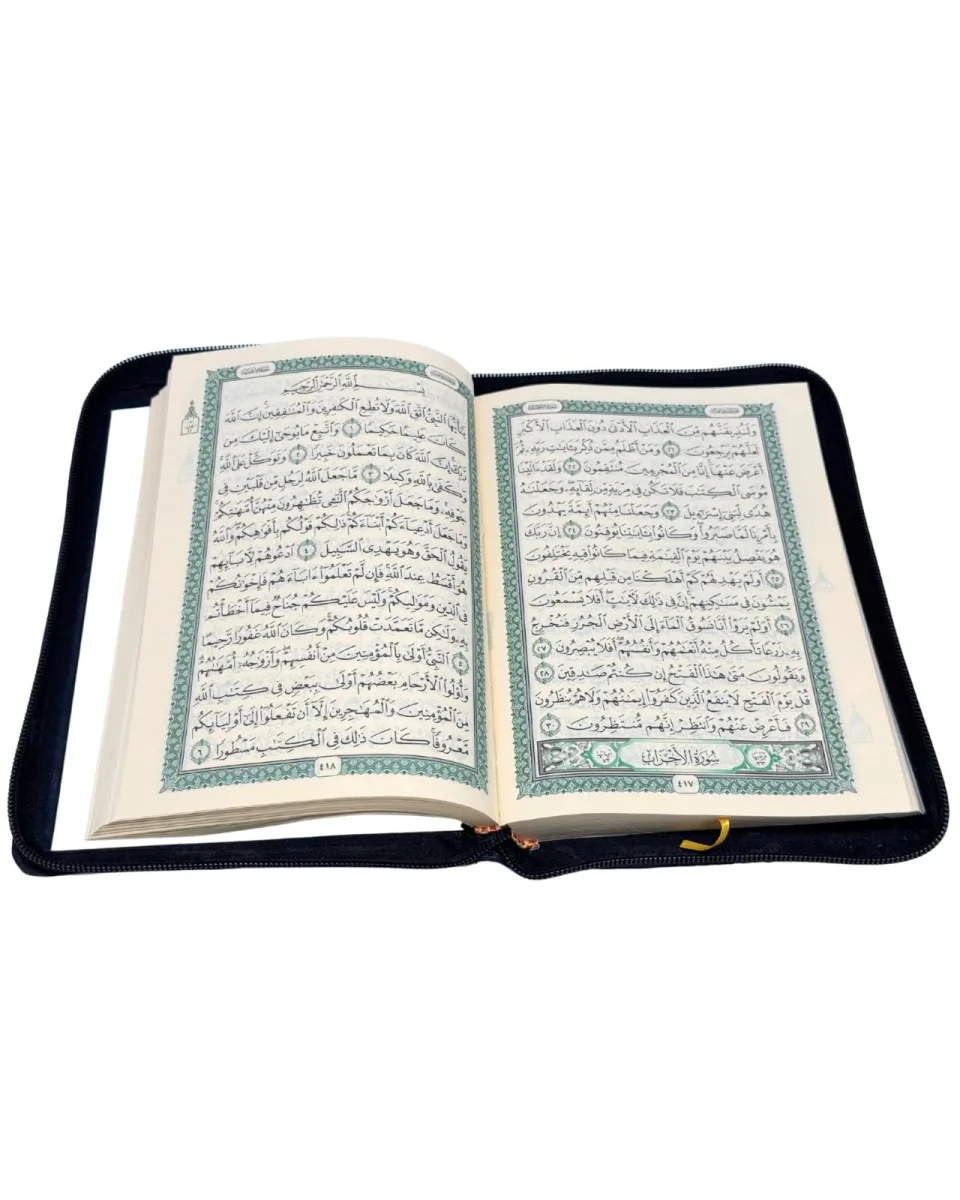 وَلَنُذِيقَنَّهُم مِّنَ ٱلْعَذَابِ ٱلْأَدْنَىٰ دُونَ ٱلْعَذَابِ ٱلْأَكْبَرِ
لَعَلَّهُمْ يَرْجِعُونَ ٢١ وَمَنْ أَظْلَمُ مِمَّن ذُكِّرَ بِـَٔايَٰتِ رَبِّهِۦ ثُمَّ
أَعْرَضَ عَنْهَآ إِنَّا مِنَ ٱلْمُجْرِمِينَ مُنتَقِمُونَ ٢٢ وَلَقَدْ ءَاتَيْنَا
مُوسَى ٱلْكِتَٰبَ فَلَا تَكُن فِى مِرْيَةٍ مِّن لِّقَآئِهِۦ وَجَعَلْنَٰهُ
هُدًى لِّبَنِىٓ إِسْرَٰٓءِيلَ ٢٣ وَجَعَلْنَا مِنْهُمْ أَئِمَّةً يَهْدُونَ
بِأَمْرِنَا لَمَّا صَبَرُوا۟ وَكَانُوا۟ بِـَٔايَٰتِنَا يُوقِنُونَ ٢٤ إِنَّ رَبَّكَ
هُوَ يَفْصِلُ بَيْنَهُمْ يَوْمَ ٱلْقِيَٰمَةِ فِيمَا كَانُوا۟ فِيهِ يَخْتَلِفُونَ
٢٥ أَوَلَمْ يَهْدِ لَهُمْ كَمْ أَهْلَكْنَا مِن قَبْلِهِم مِّنَ ٱلْقُرُونِ
يَمْشُونَ فِى مَسَٰكِنِهِمْ إِنَّ فِى ذَٰلِكَ لَـَٔايَٰتٍ أَفَلَا يَسْمَعُونَ
٢٦ أَوَلَمْ يَرَوْا۟ أَنَّا نَسُوقُ ٱلْمَآءَ إِلَى ٱلْأَرْضِ ٱلْجُرُزِ فَنُخْرِجُ
بِهِۦ زَرْعًا تَأْكُلُ مِنْهُ أَنْعَٰمُهُمْ وَأَنفُسُهُمْ أَفَلَا يُبْصِرُونَ ٢٧
وَيَقُولُونَ مَتَىٰ هَٰذَا ٱلْفَتْحُ إِن كُنتُمْ صَٰدِقِينَ ٢٨
قُلْ يَوْمَ ٱلْفَتْحِ لَا يَنفَعُ ٱلَّذِينَ كَفَرُوٓا۟ إِيمَٰنُهُمْ وَلَا هُمْ يُنظَرُونَ
٢٩ فَأَعْرِضْ عَنْهُمْ وَٱنتَظِرْ إِنَّهُم مُّنتَظِرُونَ ٣٠
سُورَةُ الأَحْزَابِ
٤١٧
بِسْمِ ٱللَّهِ ٱلرَّحْمَٰنِ ٱلرَّحِيمِ
يَٰٓأَيُّهَا ٱلنَّبِىُّ ٱتَّقِ ٱللَّهَ وَلَا تُطِعِ ٱلْكَٰفِرِينَ وَٱلْمُنَٰفِقِينَ إِنَّ ٱللَّهَ
كَانَ عَلِيمًا حَكِيمًا ١ وَٱتَّبِعْ مَا يُوحَىٰٓ إِلَيْكَ مِن
رَّبِّكَ إِنَّ ٱللَّهَ كَانَ بِمَا تَعْمَلُونَ خَبِيرًا ٢ وَتَوَكَّلْ عَلَى ٱللَّهِ
وَكَفَىٰ بِٱللَّهِ وَكِيلًا ٣ مَّا جَعَلَ ٱللَّهُ لِرَجُلٍ مِّن قَلْبَيْنِ فِى
جَوْفِهِۦ وَمَا جَعَلَ أَزْوَٰجَكُمُ ٱلَّٰٓـِٔى تُظَٰهِرُونَ مِنْهُنَّ أُمَّهَٰتِكُمْ
وَمَا جَعَلَ أَدْعِيَآءَكُمْ أَبْنَآءَكُمْ ذَٰلِكُمْ قَوْلُكُم بِأَفْوَٰهِكُمْ وَٱللَّهُ
يَقُولُ ٱلْحَقَّ وَهُوَ يَهْدِى ٱلسَّبِيلَ ٤ ٱدْعُوهُمْ لِـَٔابَآئِهِمْ
هُوَ أَقْسَطُ عِندَ ٱللَّهِ فَإِن لَّمْ تَعْلَمُوٓا۟ ءَابَآءَهُمْ فَإِخْوَٰنُكُمْ
فِى ٱلدِّينِ وَمَوَٰلِيكُمْ وَلَيْسَ عَلَيْكُمْ جُنَاحٌ فِيمَآ أَخْطَأْتُم
بِهِۦ وَلَٰكِن مَّا تَعَمَّدَتْ قُلُوبُكُمْ وَكَانَ ٱللَّهُ غَفُورًا رَّحِيمًا
٥ ٱلنَّبِىُّ أَوْلَىٰ بِٱلْمُؤْمِنِينَ مِنْ أَنفُسِهِمْ وَأَزْوَٰجُهُۥٓ أُمَّهَٰتُهُمْ
وَأُو۟لُوا۟ ٱلْأَرْحَامِ بَعْضُهُمْ أَوْلَىٰ بِبَعْضٍ فِى كِتَٰبِ ٱللَّهِ
مِنَ ٱلْمُؤْمِنِينَ وَٱلْمُهَٰجِرِينَ إِلَّآ أَن تَفْعَلُوٓا۟ إِلَىٰٓ أَوْلِيَآئِكُم
مَّعْرُوفًا كَانَ ذَٰلِكَ فِى ٱلْكِتَٰبِ مَسْطُورًا ٦
٤١٨